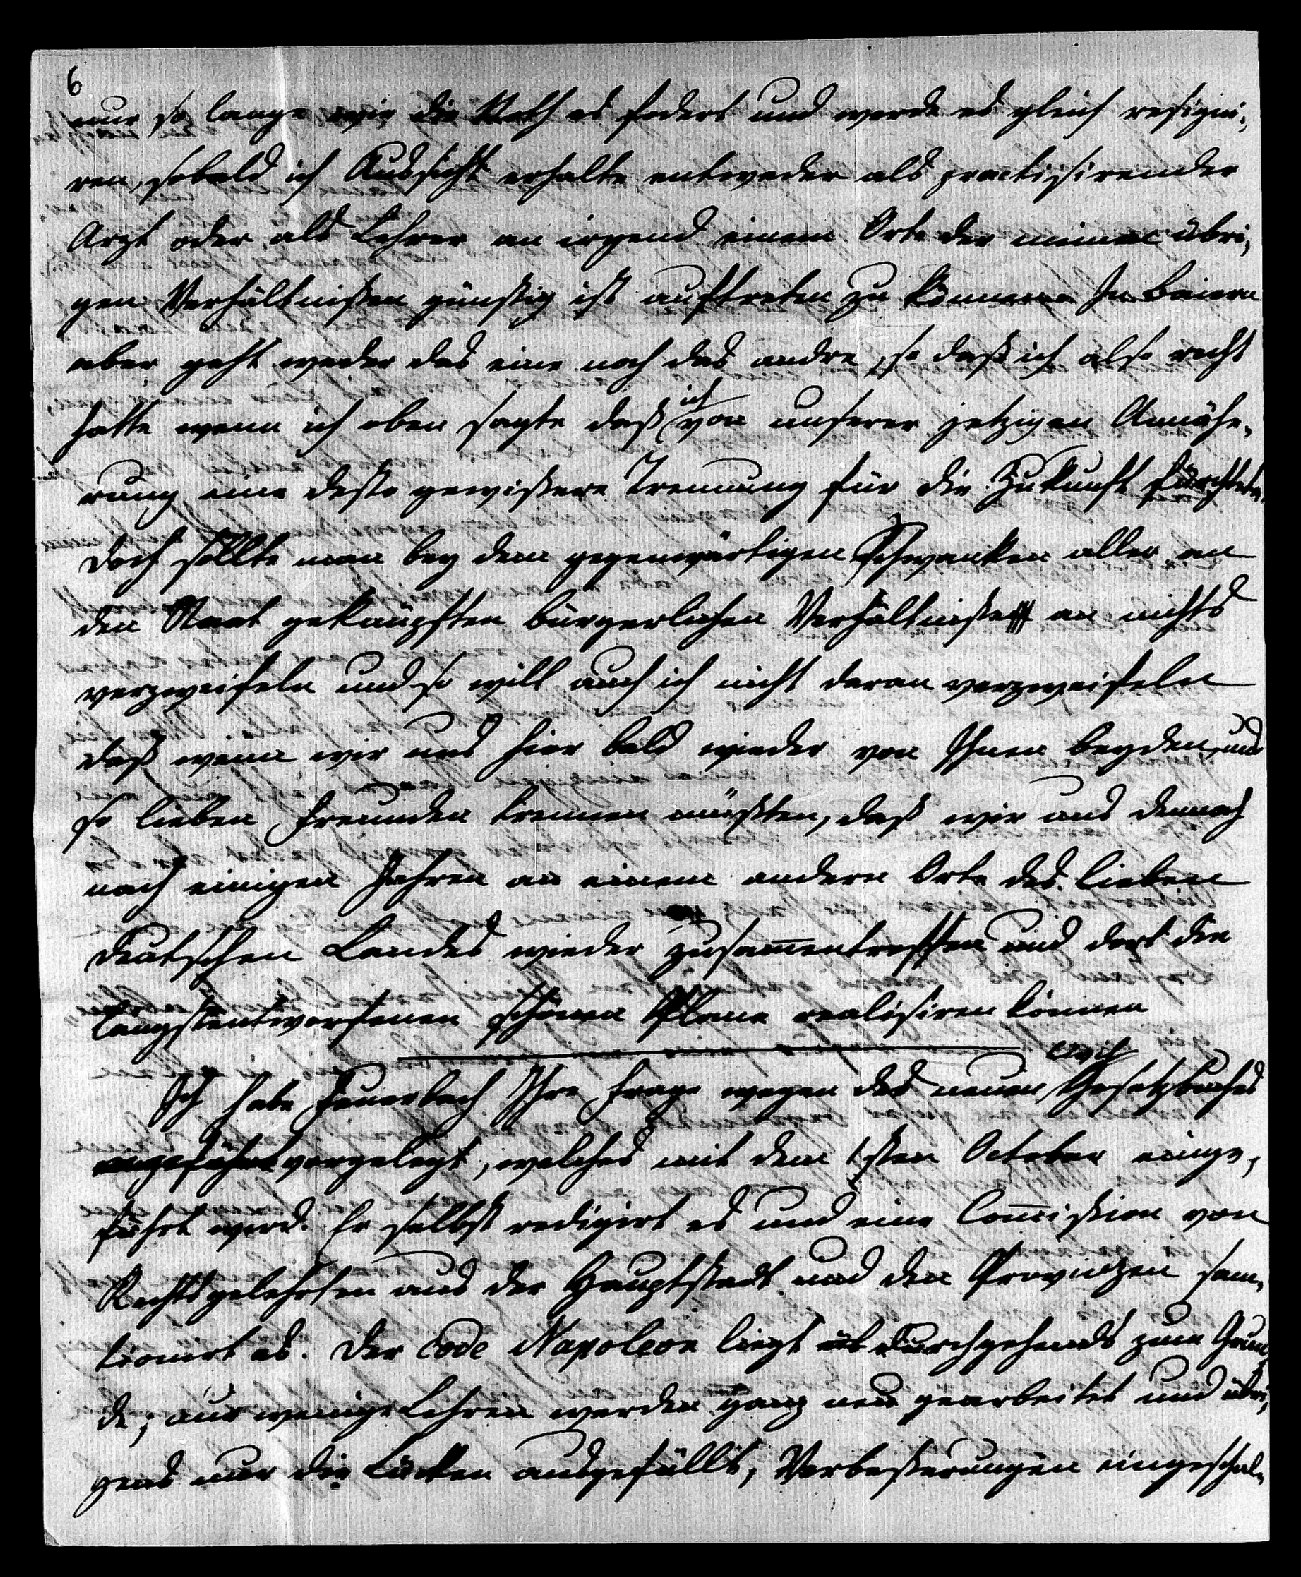 6
nur so lange wie die Noth es fodert und werde es gleich resigni-
ren, sobald ich Aussicht erhalte entweder als practisirender
Arzt oder als Lehrer an irgend einem Orte der meinen übri-
gen Verhältnißen günstig ist auftreten zu können. In Baiern
aber geht weder das eine noch das andre, so daß ich also recht
hatte wenn ich oben sagte daß ich von unserer jetzigen Annähe-
rung eine desto gewißere Trennung für die Zukunft fürchtete.
Doch sollte man bey dem gegenwärtigen Schwanken aller an
den Staat geknüpften bürgerlichen Verhältniße an nichts
verzweifeln und so will auch ich nicht daran verzweifeln
daß wenn wir uns hier bald wieder von Ihnen beyden uns
so lieben Freunden trennen müßten, daß wir uns dennoch
nach einigen Jahren an einem andern Orte des lieben
deutschen Landes wieder zusammentreffen und dort die
längstentworfenen schönen Plane realisiren können
Ich habe Feuerbach Ihre Frage wegen des neuen Gesetzbuches
vorgelegt, welches mit dem 1sten October einge-
führt werd. Er selbst redigirt es und eine Commißion von
Rechtsgelehrten aus der Hauptstadt und den Provinzen sanc-
tionirt es. Der Code Napoleon liegt durchgehends zum Grun-
de; nur wenige Lehren werden ganz neu gearbeitet und übri-
gens nur die Lücken ausgefüllt, Verbeßerungen eingeschal-